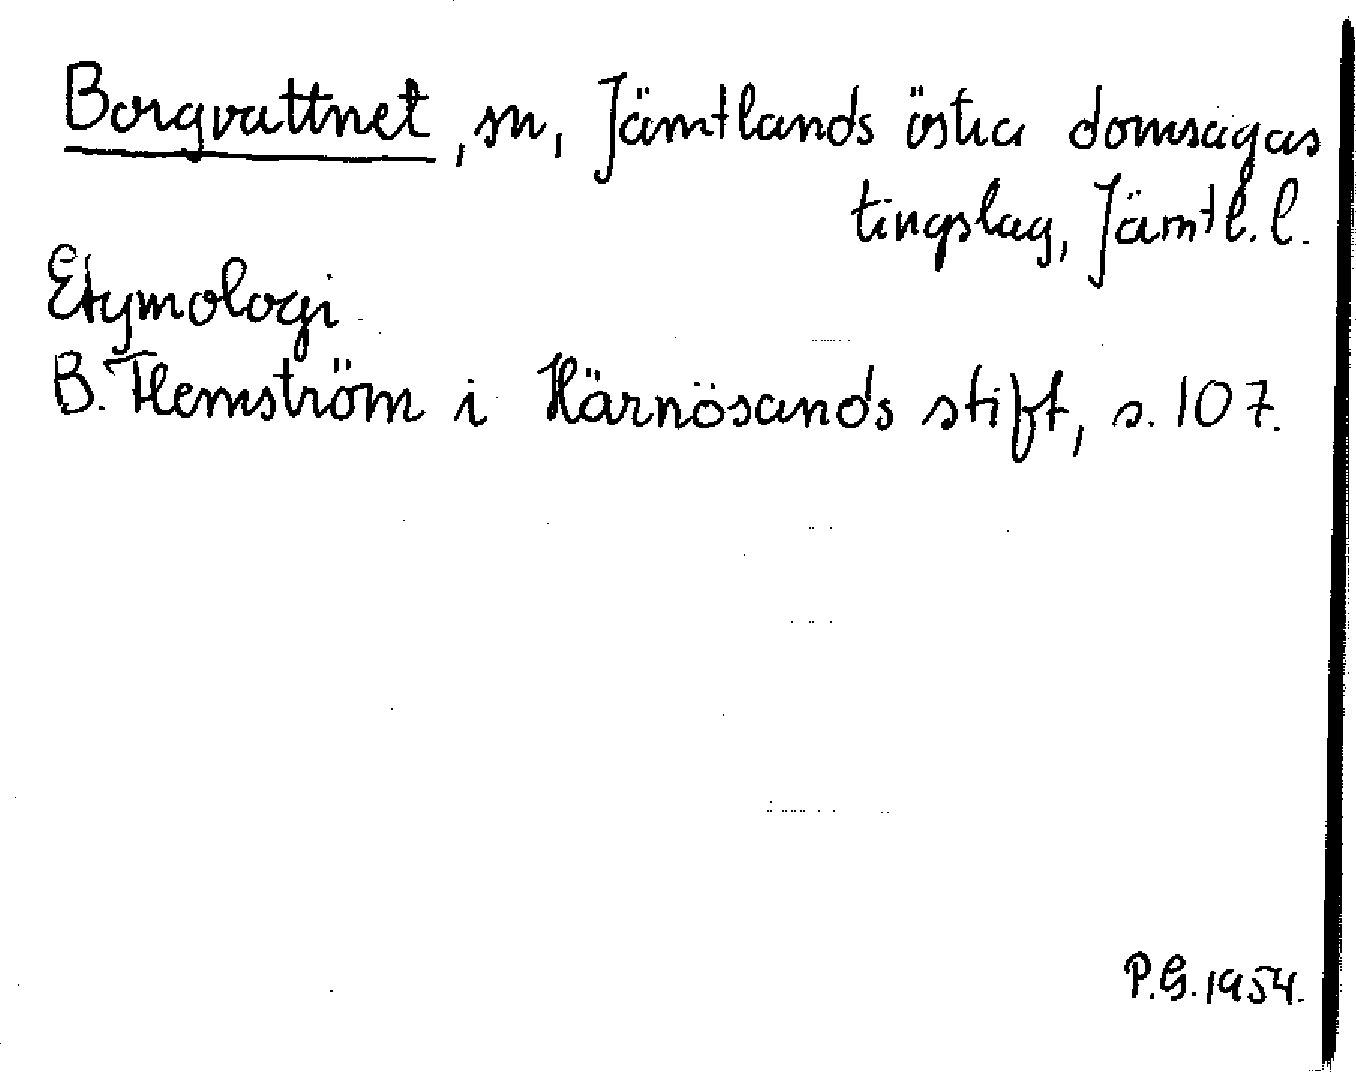 Borgvattnet, sn, Jämtlands östra domsagas
tingslag, Jämtl.l.
Etymologi
B. Flemström i Härnösands stift, s. 107.
P.G. 1954.